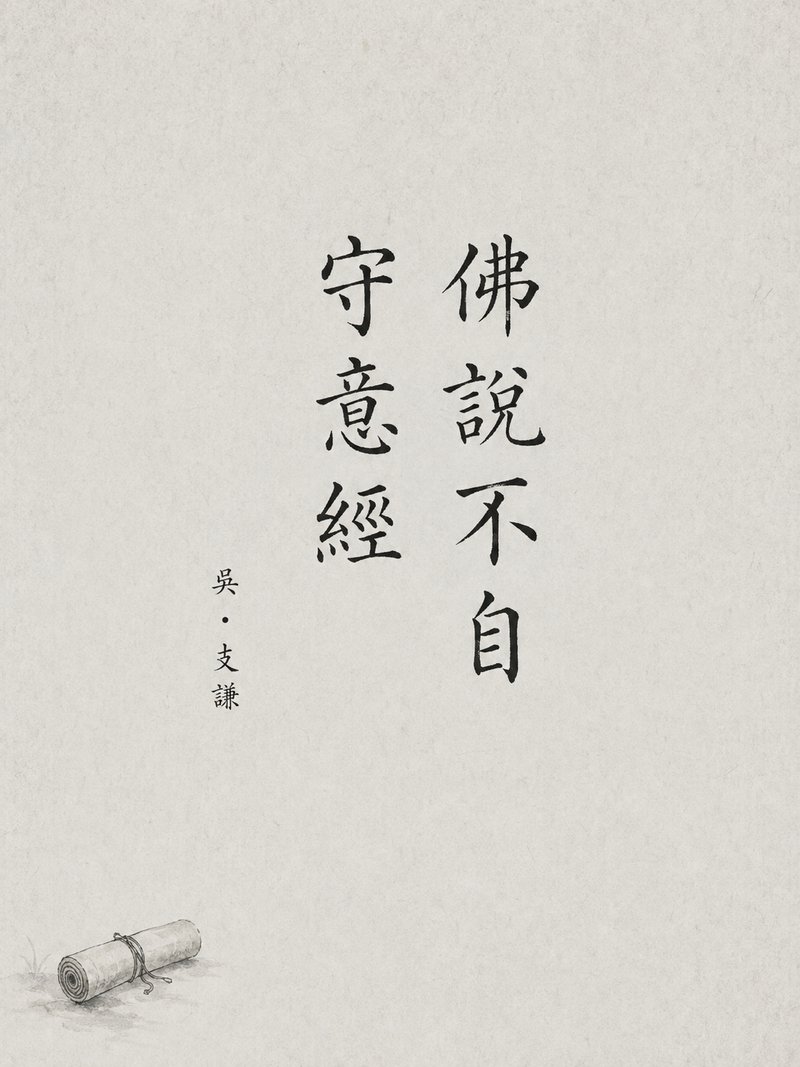 佛說不自
守意經
吳・支謙